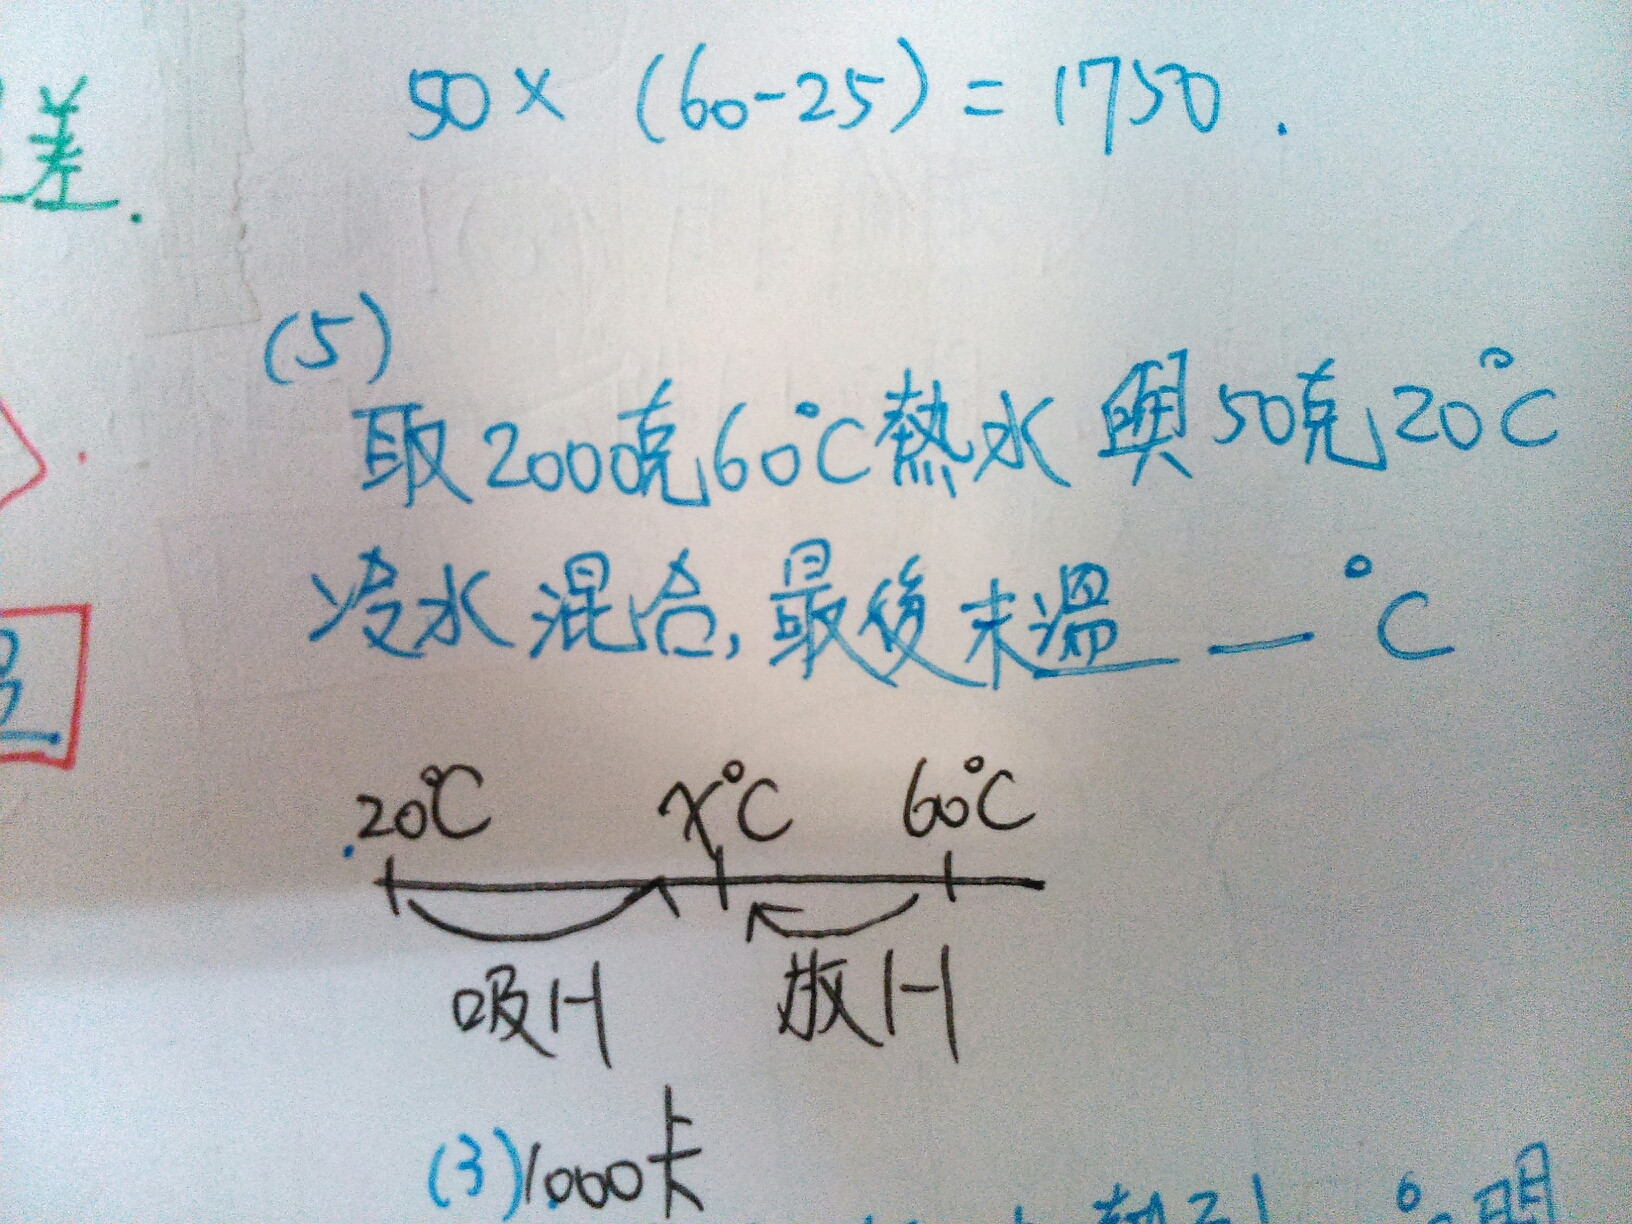 50 × (60-25) = 1750.
差.
(5)
取2000克60°C熱水與50克20°C
冷水混合,最後末溫__°C
20°C x°C 60°C
吸H 放H
(3)1000卡